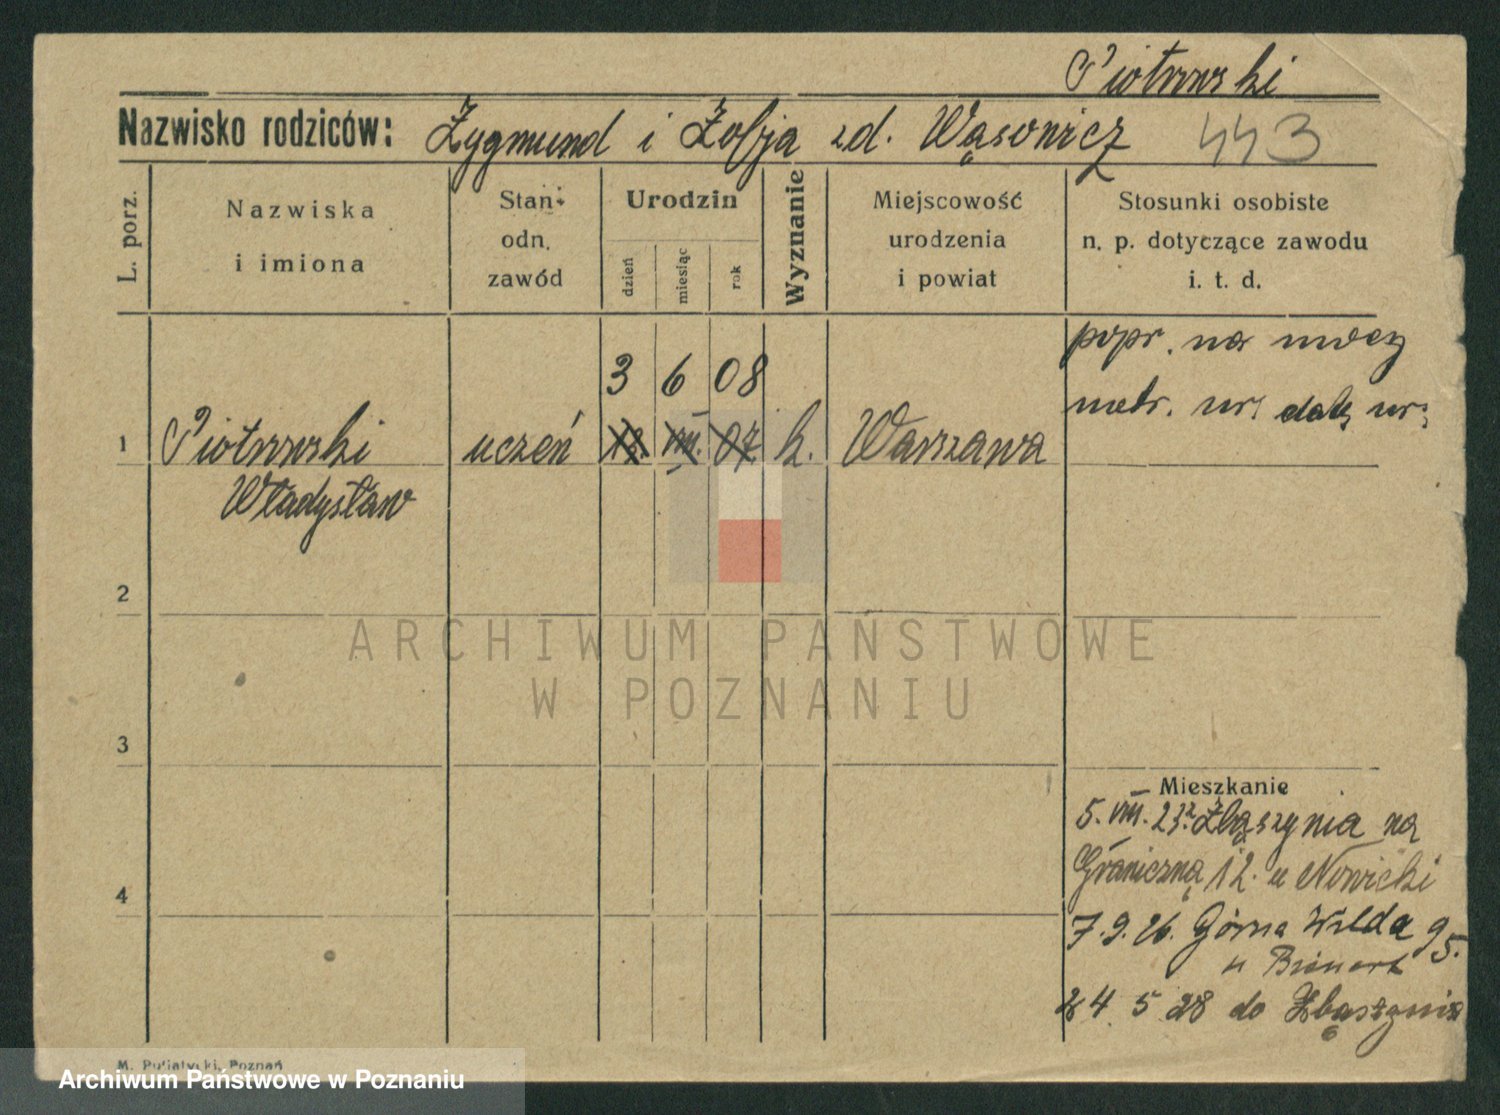 Piotrowski
Nazwisko rodziców: Zygmund i Zofja zd. Wąsowicz 443
L. porz.
Nazwiska
i imiona
Stan
odn.
zawód
Urodzin
dzień
miesiąc
rok
Wyznanie
Miejscowość
urodzenia
i powiat
Stosunki osobiste
n. p. dotyczące zawodu
i. t. d.
popr. na mocy
metr. ur. daty ur.
3 6 08
1 Piotrowski uczeń VIII. 07 k. Warszawa
Władysław
2
ARCHIWUM PAŃSTWOWE
W POZNANIU
3
Mieszkanie
5. VIII. 23. z Zbąszynia na
Graniczną 12. u Nowicki
4
7. 9. 26. Górna Wilda 95.
u
24 5 28 do Zbąszynia
M. Putiatycki, Poznań
Archiwum Państwowe w Poznaniu